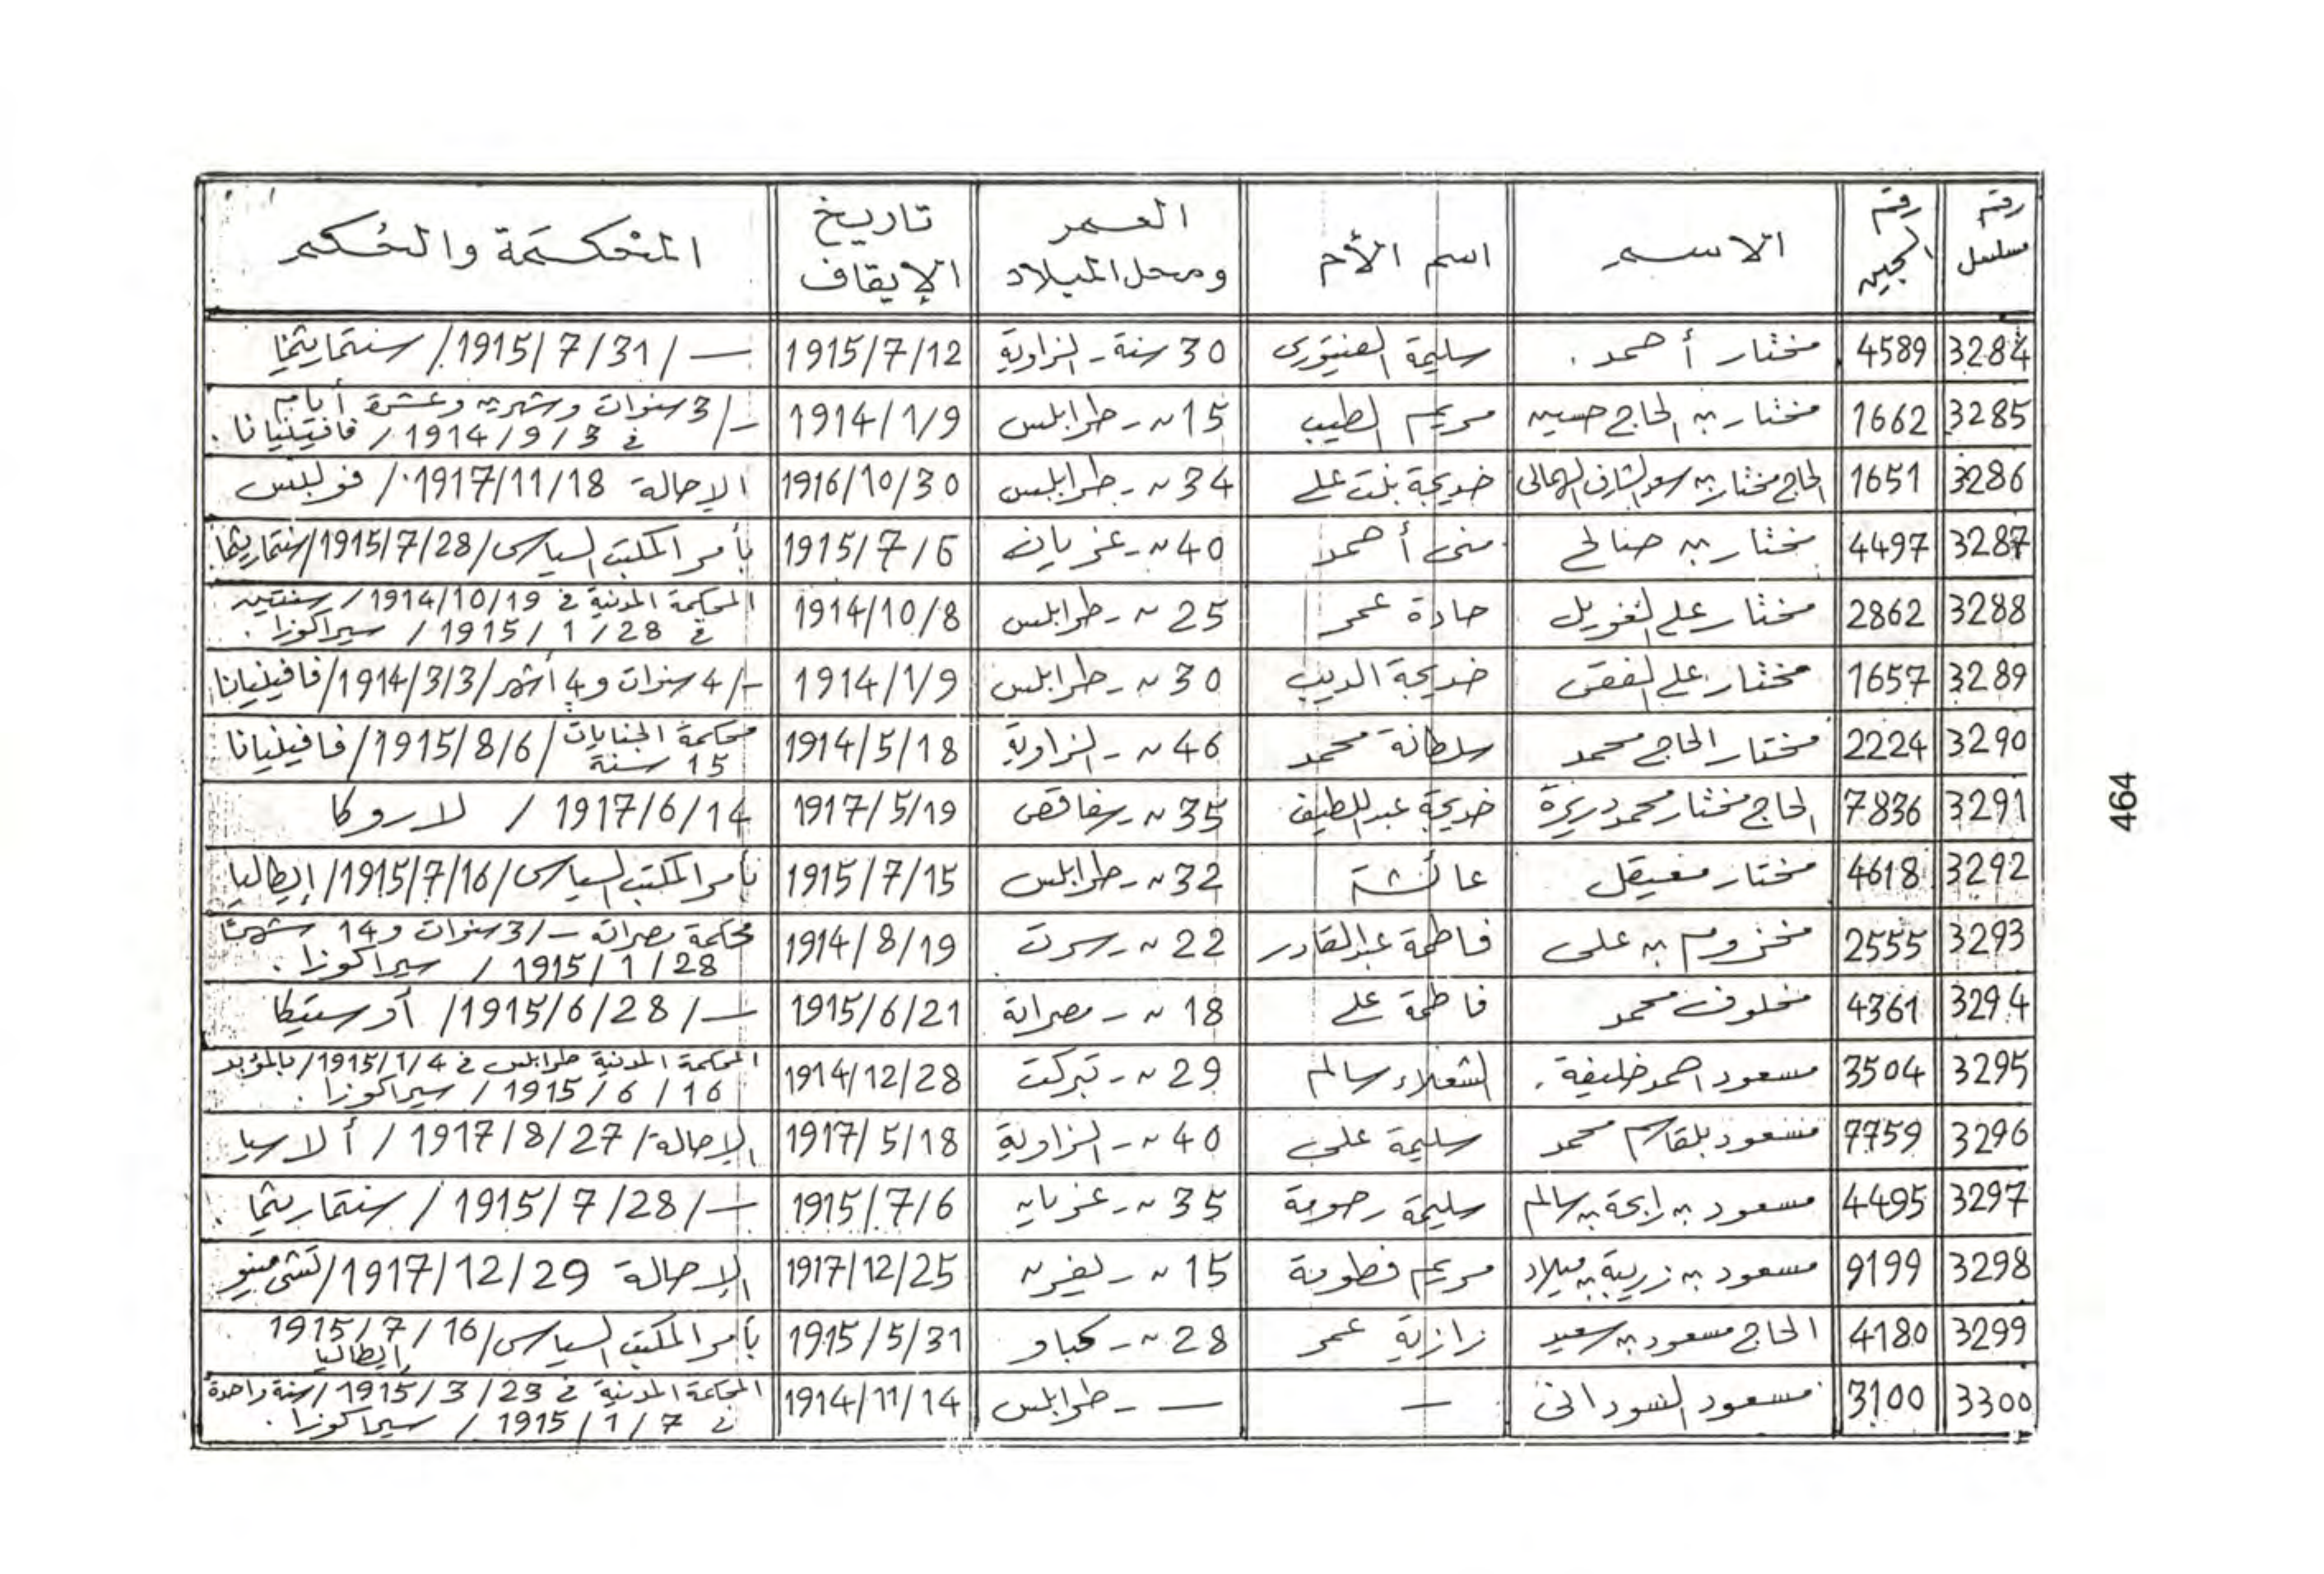 رقم مسلسل رقم السجين الاســم اسم الأم العمر ومحل الميلاد تاريخ الإيقاف المحكمة والحكم
3284 4589 مختار أحمد . سليمة الفيتوري 30 سنة - الزاوية 1915/7/12 — / 1915/7/31 / ستماريتما
3285 1662 مختار بن الحاج حسين مريم الطيب 15 ~ - طرابلس 1914/1/9 —/3 سنوات وشهرين وعشرة أيام
في 1914/9/3 / فافينيانا .
3286 1651 الحاج مختار بن خديجة بنت علي 34 ~ - طرابلس 1916/10/30 الإحالة 1917/11/18 /
3287 4497 مختار بن صالح منى أحمد 40 ~ - غريان 1915/7/6 بأمر المكتب السياسى/1915/7/28/ستماريتما
3288 2862 مختار علي الغويل حادة عمر 25 ~ - طرابلس 1914/10/8 المحكمة المدنية في 1914/10/19 / سنتين
في 1915/1/28 / سيراكوزا .
3289 1657 مختار علي الفقى خديجة الديب 30 ~ - طرابلس 1914/1/9 —/4 سنوات و4 أشهر/1914/3/3/فافينيانا
3290 2224 مختار الحاج محمد سلطانة محمد 46 ~ - الزاوية 1914/5/18 محكمة الجنايات 15 سنة /1915/8/6/ فافينيانا
3291 7836 الحاج مختار محمد خديجة عبد اللطيف 35 ~ - سفاقص 1917/5/19 1917/6/14 / لاروكا
3292 4618 مختار معيقل عائشة 32 ~ - طرابلس 1915/7/15 بأمر المكتب السياسى/1915/7/16/إيطاليا
3293 2555 مخزوم بن على فاطمة عبد القادر 22 ~ - سرت 1914/8/19 محكمة مصراته —/3 سنوات و14 شهرًا
1915/1/28 / سيراكوزا .
3294 4361 مخلوف محمد فاطمة علي 18 ~ - مصراتة 1915/6/21 — / 1915/6/28 / أوستيكا
3295 3504 مسعود احمد خليفة . الشعلاء سالم 29 ~ - 1914/12/28 المحكمة المدنية طرابلس في 1915/1/4/ بالمؤبد
1915/6/16 / سيراكوزا .
3296 7759 مسعود بلقاسم محمد سليمة على 40 ~ - الزاوية 1917/5/18 الإحالة/ 1917/8/27 / ألاسيا
3297 4495 مسعود بن رابحة بن سالم سليمة رحومة 35 ~ - غريان 1915/7/6 — / 1915/7/28 / ستماريتما .
3298 9199 مسعود بن زريبة بن ميلاد مريم فطومة 15 ~ - يفرن 1917/12/25 الإحالة 1917/12/29 /
3299 4180 الحاج مسعود بن سعيد رازية عمر 28 ~ - كباو 1915/5/31 بأمر المكتب السياسى/1915/7/16
إيطاليا
3300 3100 مسعود السودانى — — - طرابلس 1914/11/14 المحكمة المدنية في 1915/3/23/سنة واحدة
في 1915/1/7 / سيراكوزا .
464